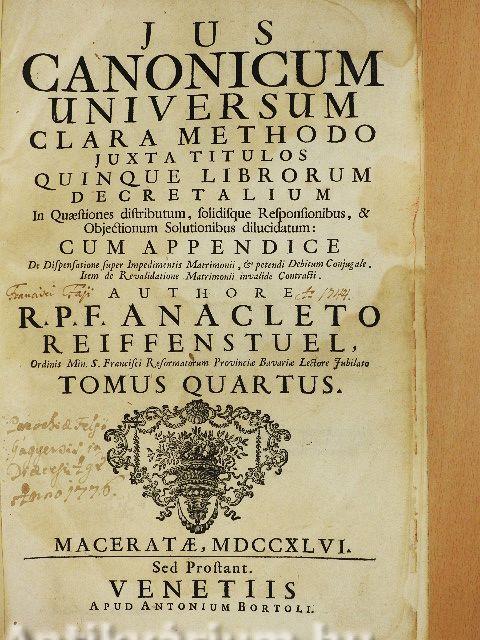 JUS
CANONICUM
UNIVERSUM
CLARA METHODO
JUXTA TITULOS
QUINQUE LIBRORUM
DECRETALIUM
In Quæstiones distributum, solidisque Responsionibus, &
Objectionum Solutionibus dilucidatum:
CUM APPENDICE
De Dispensatione super Impedimentis Matrimonii, & petendi Debitum Conjugale.
Item de Revalidatione Matrimonii invalide Contracti.
AUTHORE
R.P.F. ANACLETO
REIFFENSTUEL,
Ordinis Min. S. Francisci Reformatorum Provinciæ Bavariæ Lectore Jubilato
TOMUS QUARTUS.
Anno 1776.
MACERATÆ, MDCCXLVI.
Sed Prostant.
VENETIIS
APUD ANTONIUM BORTOLI.
Antikvárium.hu